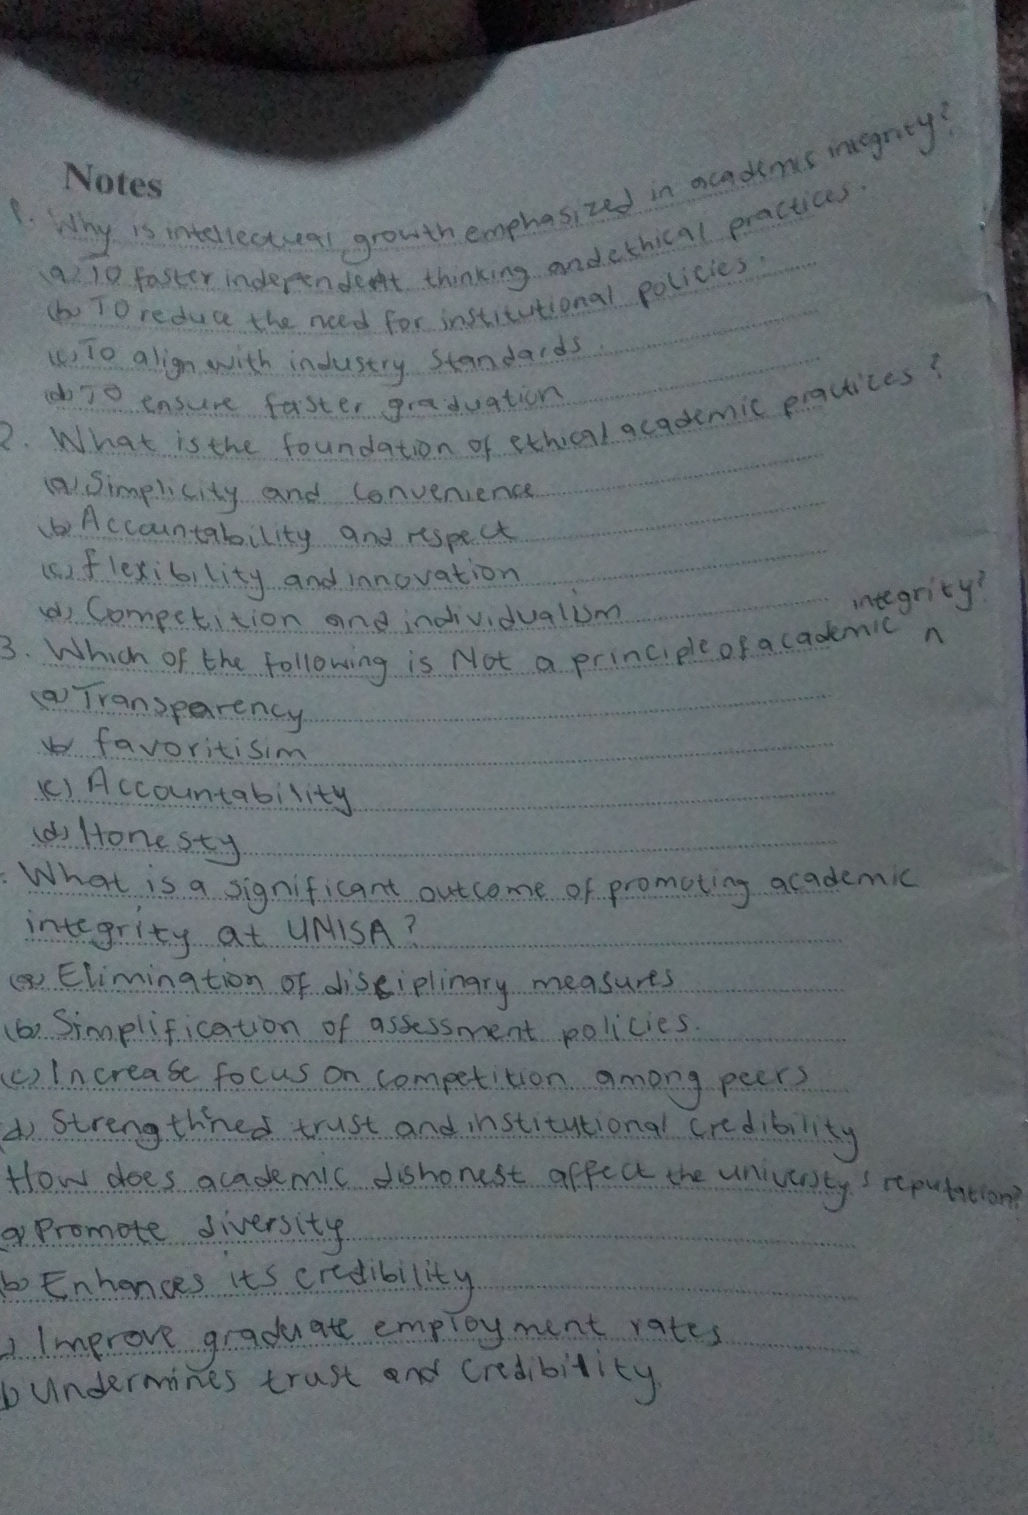 Notes
1. Why is intellectual growth emphasized in academis integrity?
(a) To faster independent thinking and ethical practices.
(b) To reduce the need for institutional policies.
(c) To align with industry standards.
(d) To ensure faster graduation
2. What is the foundation of ethical academic practices?
(a) Simplicity and convenience
(b) Accountability and respect
(c) flexibility and innovation
(d) Competition and individualism
3. Which of the following is Not a principle of academic integrity?
(a) Transparency
(b) favoritisim
(c) Accountability
(d) Honesty
. What is a significant outcome of promoting academic
integrity at UNISA?
(a) Elimination of disciplinary measures
(b) Simplification of assessment policies.
(c) Increase focus on competition among peers
d) Strengthned trust and institutional credibility
How does academic dishonest affect the university's reputation?
a) Promote diversity
(b) Enhances its credibility
) Improve graduate employment rates
D Undermines trust and credibility.